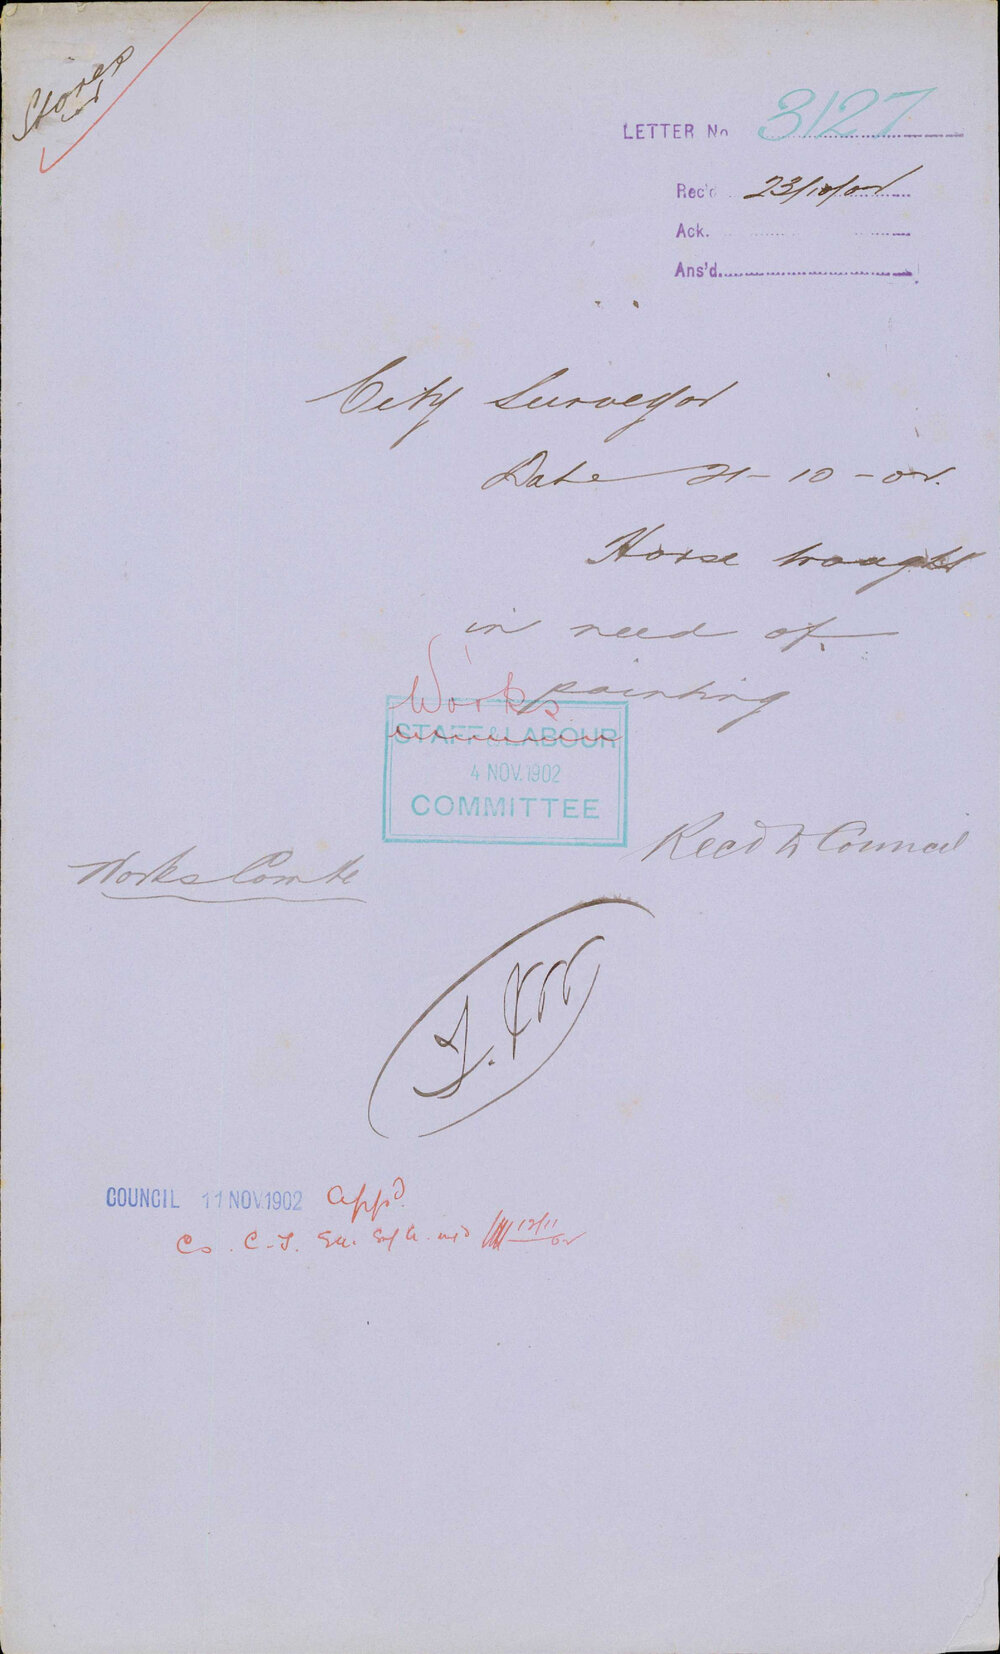 Stores
LETTER No 3127
Rec'd 23/10/02
Ack.
Ans'd.
City Surveyor
Date 21-10-02.
Horse troughs
in need of
painting
Works
STAFF & LABOUR
4 NOV. 1902
COMMITTEE
Recd to Council
Works Comtte
COUNCIL 11 NOV. 1902 App'd.
Co. C.T. 12/11/02